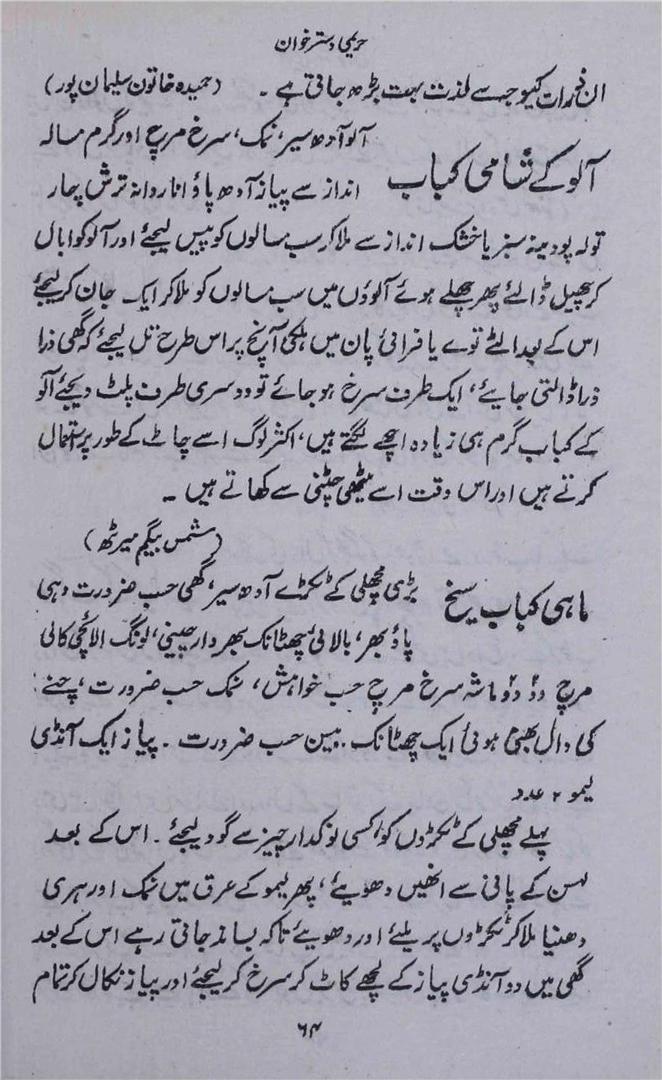 حریمی دستر خوان
ان نجمرات کیوجہ سے لذت بہت بڑھ جاتی ہے ۔ (حمیدہ خاتون سلیمان پور)
آلو کے شامی کباب
آلو آدھ سیر، نمک، سرخ مرچ اور گرم مسالہ
انداز سے پیاز آدھ پاؤ انار دانہ ترش چار
تولہ پودینہ سبز یا خشک انداز سے ملا کر سب مسالوں کو پیس لیجئے اور آلو کو ابال
کر چھیل ڈالئے پھر چھلے ہوئے آلوؤں میں سب مسالوں کو ملا کر ایک جان کر لیجئے
اس کے بعد الٹے توے یا فرائی پان میں ہلکی آنچ پر اس طرح تل لیجئے کہ گھی ذرا
ذرا ڈالتی جایئے، ایک طرف سرخ ہو جائے تو دوسری طرف پلٹ دیجئے آلو
کے کباب گرم ہی زیادہ اچھے لگتے ہیں، اکثر لوگ اسے چاٹ کے طور پر استعمال
کرتے ہیں اور اس وقت اسے میٹھی چٹنی سے کھاتے ہیں ۔
(شمس بیگم میرٹھ)
ماہی کباب سیخ
بڑی مچھلی کے ٹکڑے آدھ سیر، گھی حسب ضرورت دہی
پاؤ بھر، بالائی چھٹانک بھر دار چینی، لونگ الائچی کالی
مرچ دو دو ماشہ سرخ مرچ حسب خواہش، نمک حسب ضرورت، چنے
کی دال بھنی ہوئی ایک چھٹانک بیسن حسب ضرورت ۔ پیاز ایک آنڈی
لیمو ۲ عدد
پہلے مچھلی کے ٹکڑوں کو کسی نوکدار چیز سے گود لیجئے ۔ اس کے بعد
لہسن کے پانی سے انھیں دھویئے، پھر لیمو کے عرق میں نمک اور ہری
دھنیا ملا کر ٹکڑوں پر ملئے اور دھویئے تاکہ بساند جاتی رہے اس کے بعد
گھی میں دو آنڈی پیاز کے لچھے کاٹ کر سرخ کر لیجئے اور پیاز نکال کر تمام
۶۴